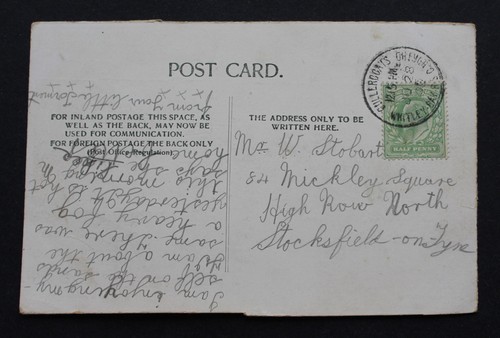 POST CARD.
FOR INLAND POSTAGE THIS SPACE, AS
WELL AS THE BACK, MAY NOW BE
USED FOR COMMUNICATION.
FOR FOREIGN POSTAGE THE BACK ONLY
(Post Office Regulation)
THE ADDRESS ONLY TO BE
WRITTEN HERE.
HALF PENNY
WHITLEY
Mr W. Stobart
84 Mickley Square
High Row North
Stocksfield-on-Tyne
I am enjoying my
self on the sands
I am about the
same there was
a heavy fog
yesterday &
this morning
says she
home
from your little
x x x